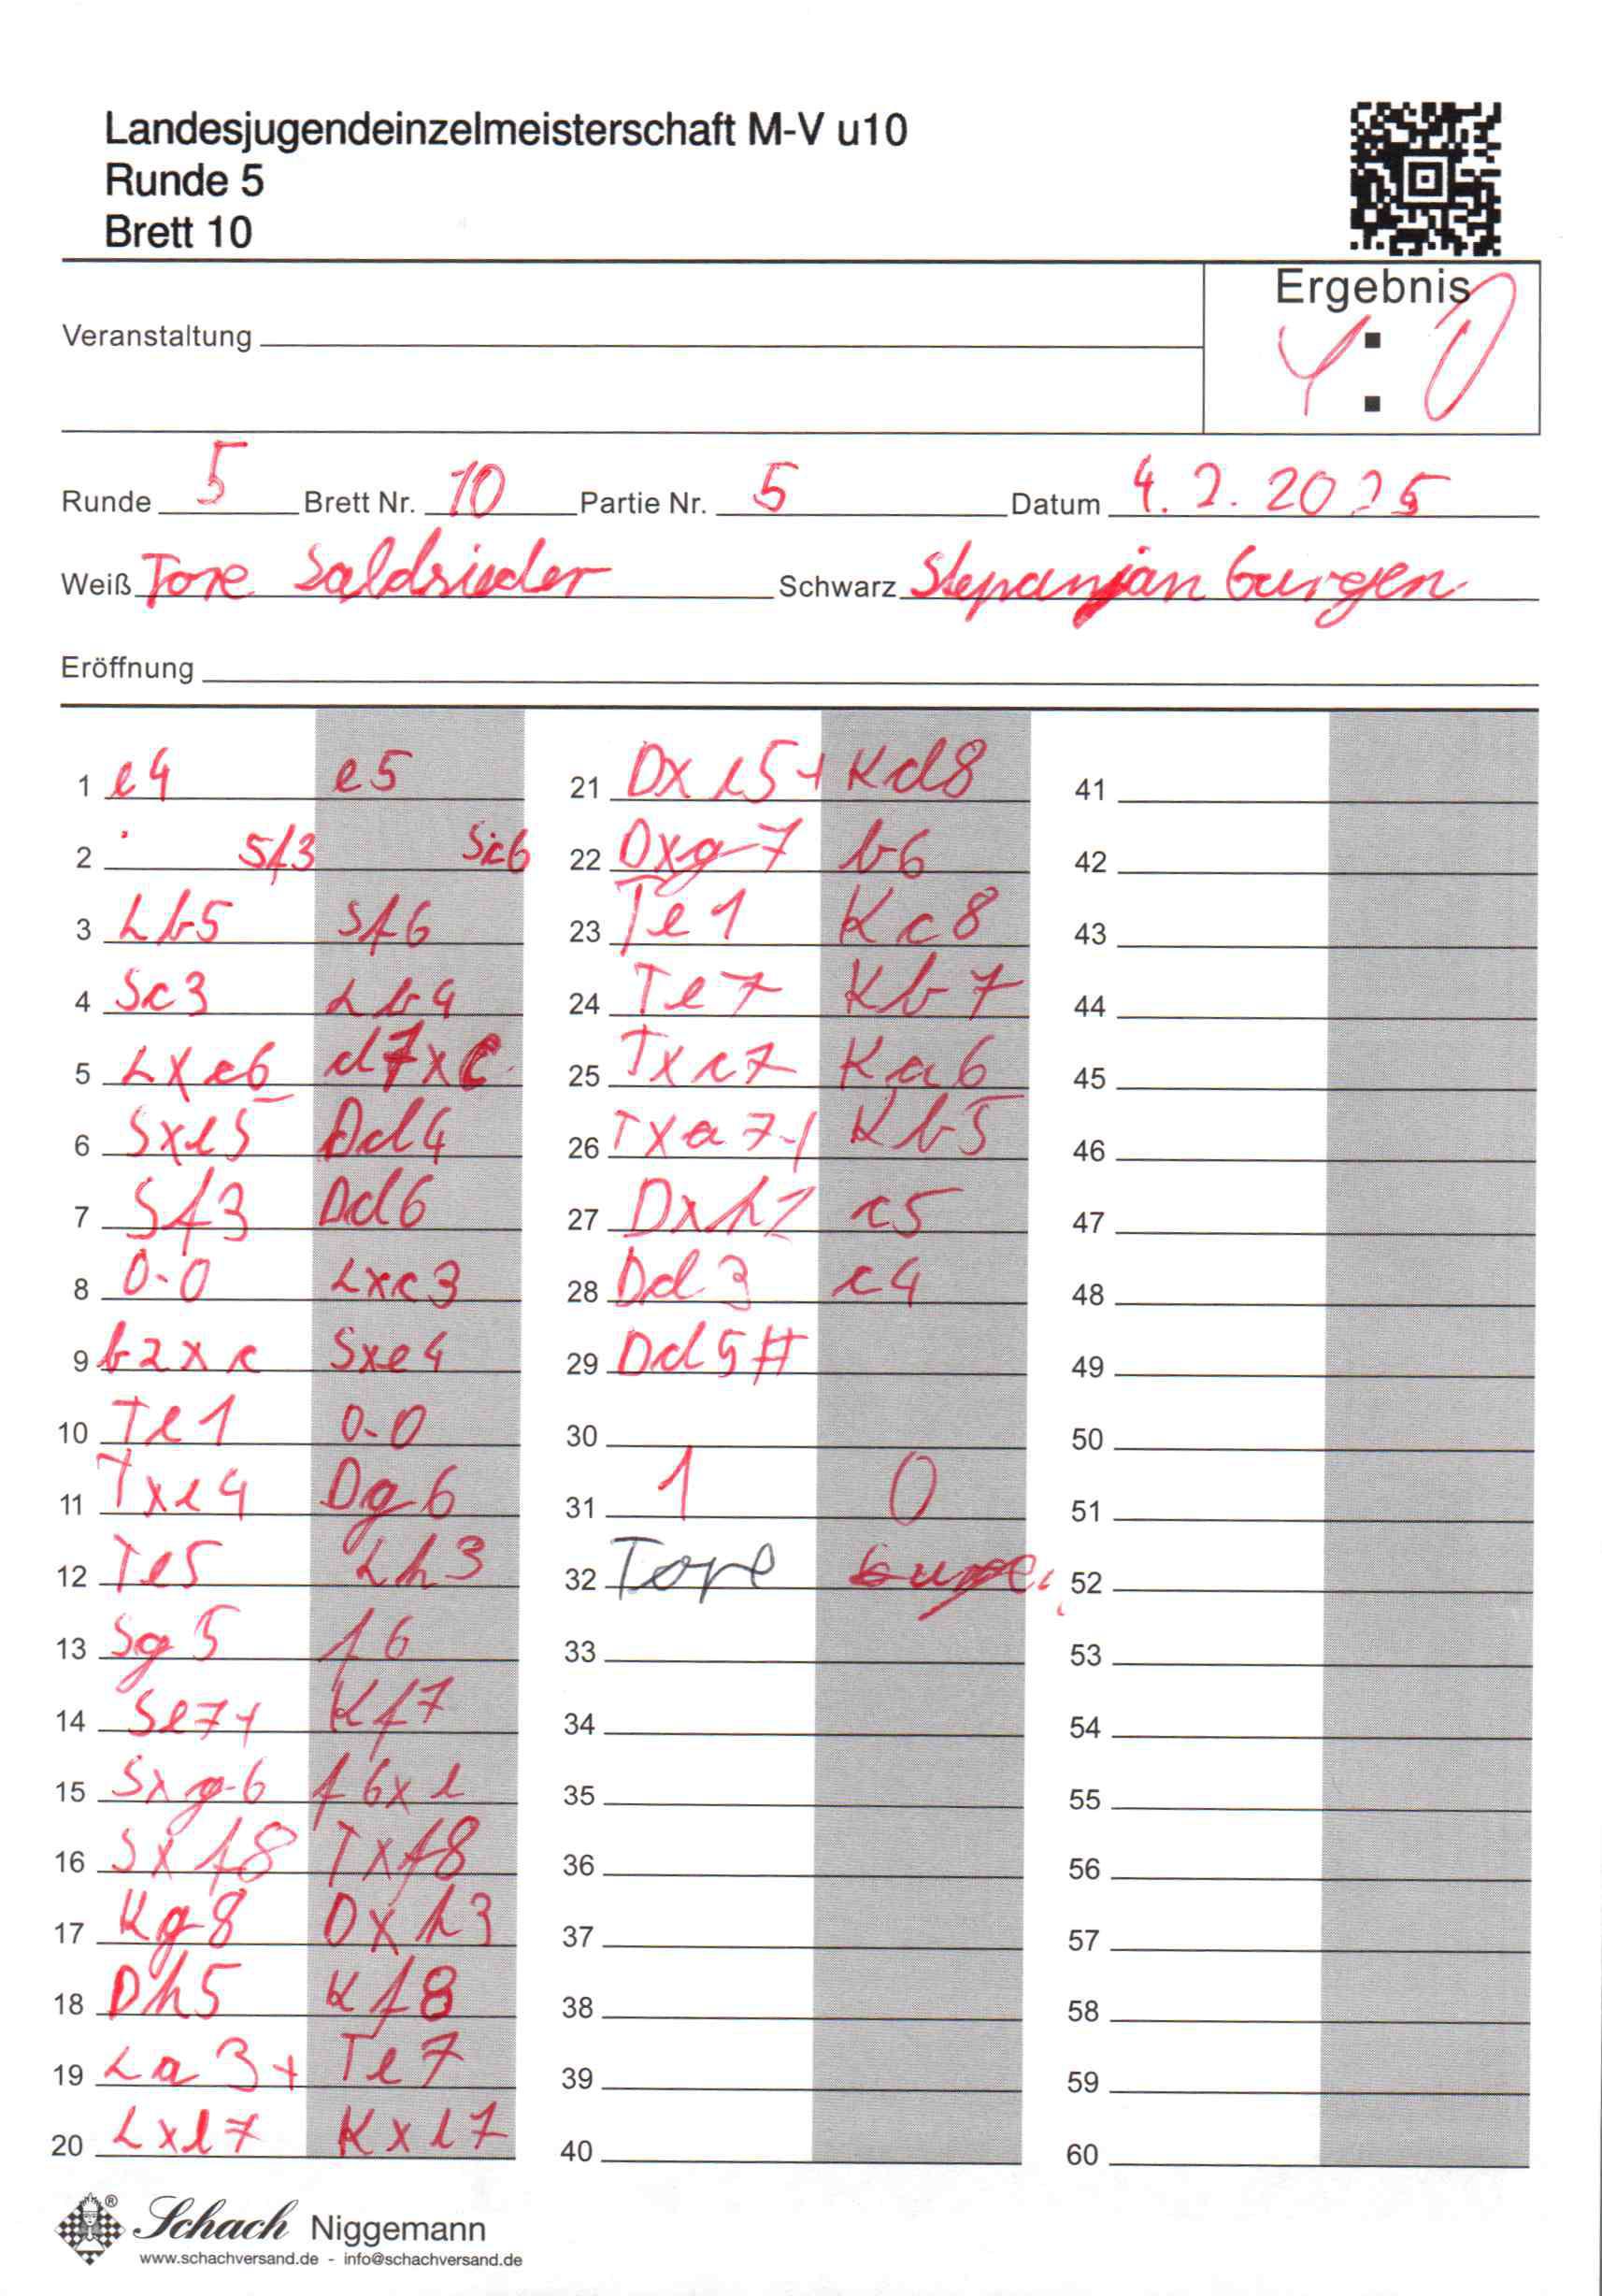 Landesjugendeinzelmeisterschaft M-V u10
Runde 5
Brett 10
Ergebnis
1 : 0
Veranstaltung
Runde 5 Brett Nr. 10 Partie Nr. 5 Datum 4. 2. 2025
Weiß Tore Saldsieder Schwarz Stepanjan Gurgen
Eröffnung
1 e4 e5
2 Sf3 Sc6
3 Lb5 Sf6
4 Sc3 Lb4
5 Lxc6 d7xc
6 Sxe5 Dd4
7 Sf3 Dd6
8 0-0 Lxc3
9 b2xc Sxe4
10 Te1 0-0
11 Txe4 Dg6
12 Te5 Lh3
13 Sg5 f6
14 Se7+ Kf7
15 Sxg6 f6xe
16 Sxf8 Txf8
17 Kg8 Dxh3
18 Dh5 Kf8
19 La3+ Te7
20 Lxe7 Kxe7
21 Dxe5+ Kd8
22 Dxg7 b6
23 Te1 Kc8
24 Te7 Kb7
25 Txc7 Ka6
26 Txa7+ Kb5
27 Dxh7 c5
28 Dd3 c4
29 Dd5#
30
31 1 0
32 Tore Gurgen
33
34
35
36
37
38
39
40
41
42
43
44
45
46
47
48
49
50
51
52
53
54
55
56
57
58
59
60
Schach Niggemann
www.schachversand.de - info@schachversand.de